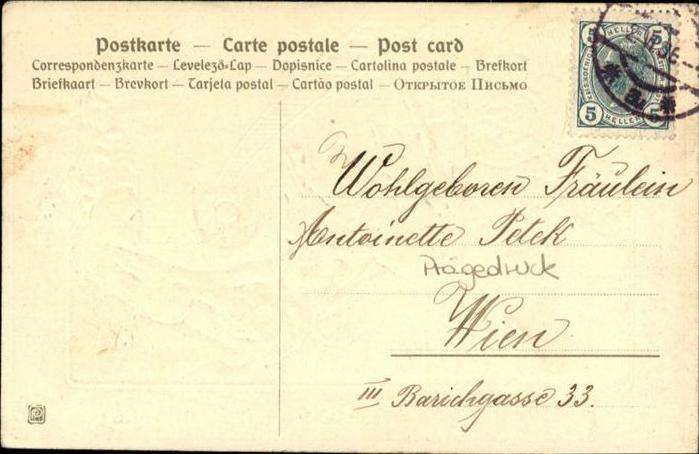 Postkarte — Carte postale — Post card
Correspondenzkarte — Levelező-Lap — Dopisnice — Cartolina postale — Brefkort
Briefkaart — Brevkort — Tarjeta postal — Cartão postal — Открытое Письмо
5 HELLER 5
5 HELLER 5
Wohlgeboren Fräulein
Antoinette Petek
Prägedruck
Wien
III Barichgasse 33.